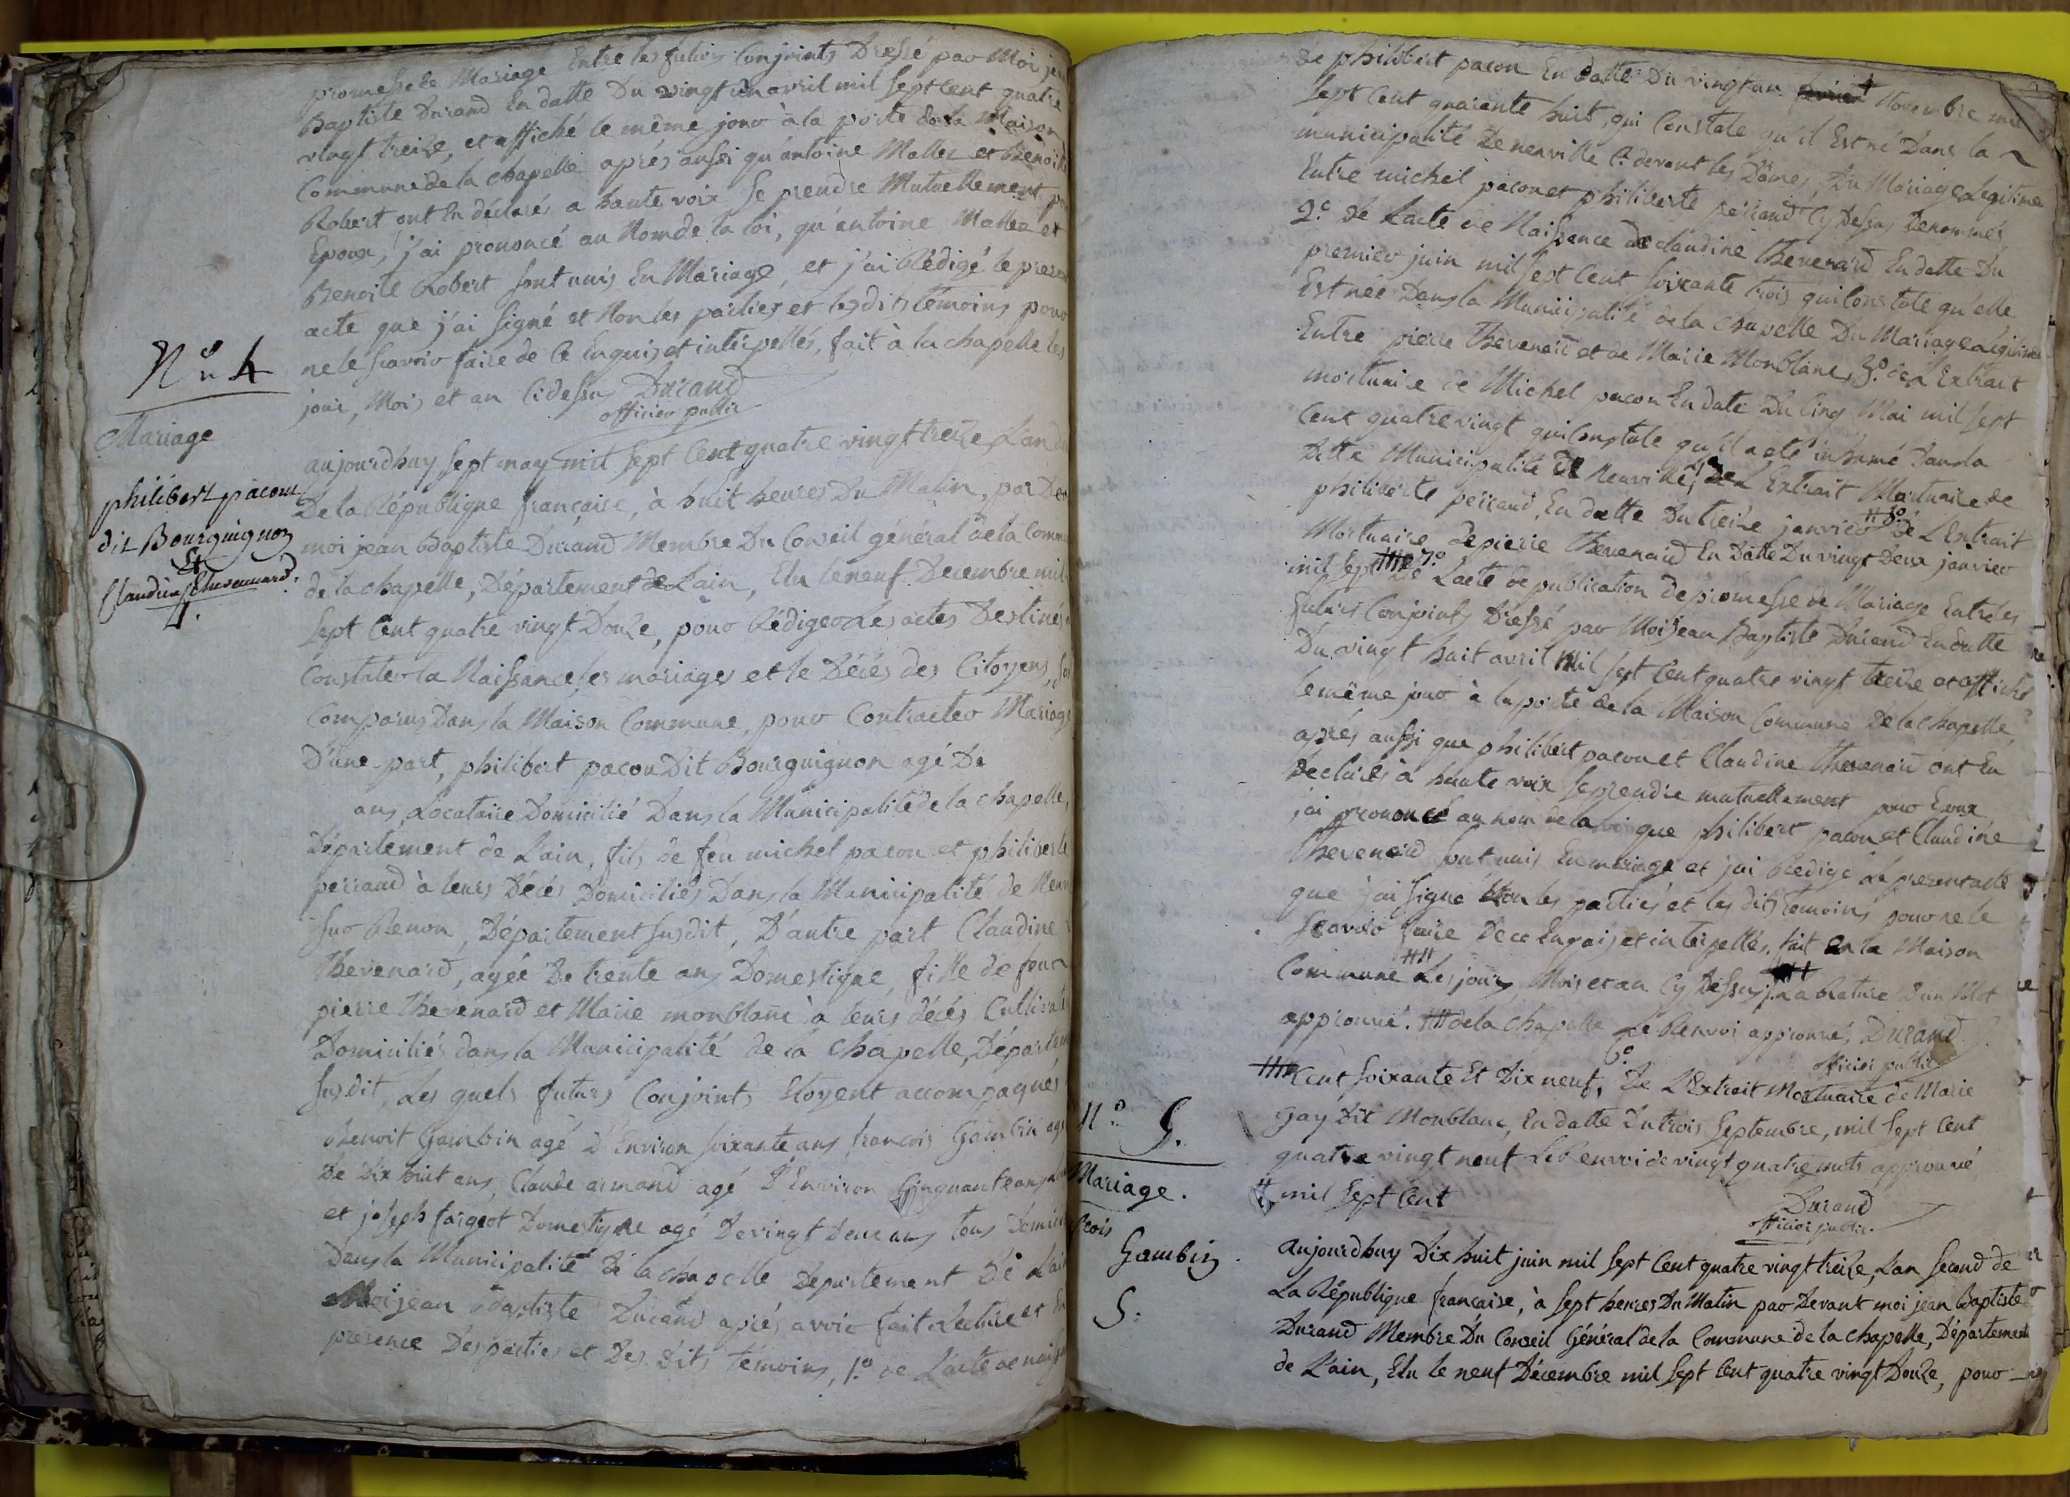 promesse de Mariage Entre les futurs Conjoints Dressé par Moi jean
Baptiste Durand En datte Du vingt un avril mil sept Cent quatre
vingt treize, et affiché le même jour à la porte de la Maison
Commune de la chapelle après aussi qu'antoine Mallez et Benoite
Robert ont En déclarés a haute voix Se prendre Mutuellement pour
Epoux, j'ai prononcé au Nom de la loi, qu'antoine Mallez et
Benoite Robert sont unis En Mariage, et j'ai Rédigé le present
acte que j'ai signé et Non les parties et lesdits témoins pour
ne le scavoir faire de Ce Enquis et interpellés, fait à la chapelle les
jour, Mois et an Cidessus Durand
officier public
N.º 4
Mariage
philibert pacon
dit Bourguignon
Et
Claudine thevennard.
4.
aujourdhuy sept may mil sept Cent quatre vingt treize, L'an
De la République francaise, à huit heures Du Matin, par De
moi jean Baptiste Durand Membre Du Conseil général de la Comm
de la chapelle, Département de L'ain, Elu le neuf Decembre mil
sept Cent quatre vingt Douze, pour Rédiger Les actes Destinés
Constater la Naissance, les mariages et le Décès des Citoyens, sont
Comparus Dans la Maison Commune, pour Contracter Mariage
D'une part, philibert pacon Dit Bourguignon agé De
ans, Locataire Domicilié Dans la Municipalité de la chapelle,
Département de L'ain, fils de feu michel pacon et philiberte
perraud à leurs Décès Domiciliés Dans la Municipalité de Neuv
sur Renon, Département susdit, D'autre part Claudine
thevenard, agée De trente ans Domestique, fille de feu
pierre thevenard et Marie monblanc à leurs décès Cultivat
Domiciliés dans la Municipalité de la Chapelle, Départem
susdit, Les quels futurs Conjoints Etoyent accompagnés
Benoit Gambin agé D'Environ soixante ans, francois Gambin agé
De Dix huit ans, Claude armand agé D'Environ Cinquante ans
et joseph fargeot Domestique agé De vingt Deux ans tous Domici
Dans la Municipalité De la chapelle Departement De L'ain
Moi jean Baptiste Durand après avoir fait Lecture et En
presence Des parties et Des Dits témoins, 1.º de L'acte de naiss
de philibert pacon En datte Du vingt un Novembre mil
sept Cent quarente huit, qui Constate qu'il Est né Dans la
municipalité De neuville Ci devant les Dames, Du Mariage Legitime
Entre michel pacon et philiberte perraud Cy Dessus Denommés
2.º de L'acte de Naissance de claudine thevenard En datte Du
premier juin mil sept Cent soixante trois qui Constate qu'elle
Est née Dans la Municipalité de la chapelle Du Mariage Legitime
Entre pierre thevenard et de Marie Monblanc, 3.º de L'Extrait
mortuaire de Michel pacon En date Du Cinq Mai mil sept
Cent quatre vingt qui Constate qu'il a eté inhumé Dans la
Ditte Municipalité De Neuville, de L'Extrait Mortuaire de
philiberte perraud, En datte Du treize janvier # 5.º de L'Extrait
Mortuaire de pierre thevenard En Datte Du vingt Deux janvier
mil sept #### 7.º De L'acte de publication de promesse de Mariage Entre les
futurs Conjoints Dressé par Moi Jean Baptiste Durand En datte
Du vingt huit avril Mil sept Cent quatre vingt treize et affiché
le même jour à la porte de la Maison Commune De la chapelle,
après aussi que philibert pacon et Claudine thevenard ont En
Declarés à haute voix se prendre mutuellement pour Epoux
j'ai prononcé au nom de la loi que philibert pacon et Claudine
thevenard sont unis En mariage et j'ai Redigé Le present acte
que j'ai signé Non les parties et les dits temoins pour ne le
scavoir faire De ce Enquis et interpellés, fait en la Maison
Commune ### Les jour, Mois et an Cy Dessus, La Rature D'un Mot
approuvé. ### de la chapelle Le Renvoi approuvé, Durand
officier public
#### Cent soixante Et Dix neuf, 6.º De L'Extrait Mortuaire de Marie
gay Dit Monblanc, En datte Du trois Septembre, mil sept Cent
quatre vingt neuf Le Renvoi de vingt quatre mots approuvé
# mil sept Cent
Durand
officier public.
N.º 5.
Mariage.
Gambin
5.
aujourdhuy Dix huit juin mil sept Cent quatre vingt treize, L'an second de
La République francaise, à sept heures Du Matin par Devant moi jean Baptiste
Durand Membre Du Conseil Général de la Commune de la chapelle, Département
de L'ain, Elu le neuf Décembre mil sept Cent quatre vingt Douze, pour